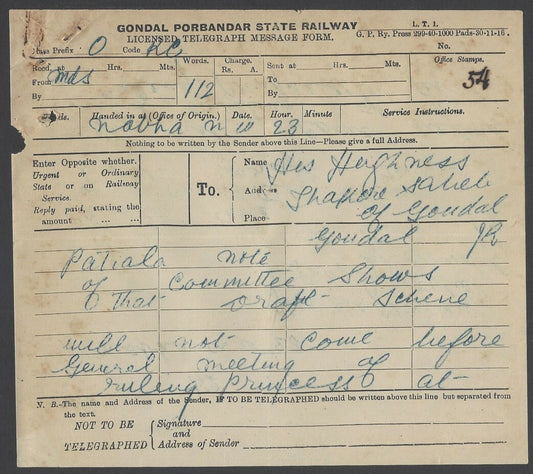 GONDAL PORBANDAR STATE RAILWAY
L. T. 1.
LICENSED TELEGRAPH MESSAGE FORM.
G. P. Ry. Press 299-40-1000 Pads-30-11-16.
Class Prefix O Code
No.
Recd. at Hrs. Mts.
From Mds
By
Words. 112
Charge. Rs. A.
Sent at Hrs. Mts.
To
By
Office Stamps.
54
Handed in at (Office of Origin). Date. Hour. Minute
Service Instructions.
Nabha 23
Nothing to be written by the Sender above this Line—Please give a full Address.
Enter Opposite whether.
Urgent or Ordinary
State or on Railway
Service.
Reply paid, stating the
amount ... ...
To.
Name His Highness
Address Thakore Saheb
of Gondal
Place Gondal
Patiala note
of Committee Shows
that draft Scheme
will not come before
General meeting of
ruling Princess at
N. B.—The name and Address of the Sender, IF TO BE TELEGRAPHED should be written above this line but separated from
the text.
NOT TO BE
TELEGRAPHED
Signature
and
Address of Sender